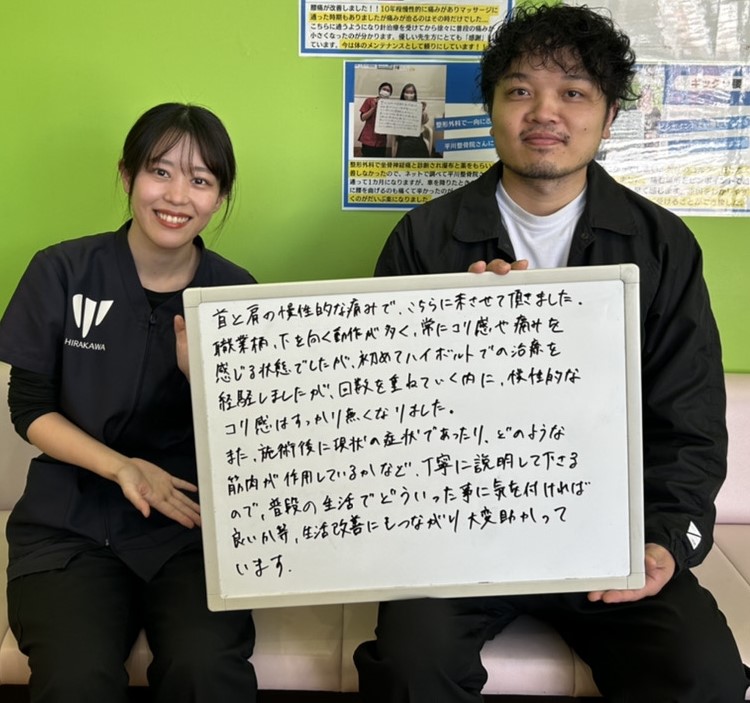 腰痛が改善しました!!10年程慢性的に痛みがありマッサージに
通った時期もありましたが痛みが治るのはその時だけでした…
こちらに通うようになり針治療を受けてから徐々に普段の痛みが
小さくなったのが分かります。優しい先生方にとても「感謝」し
ています。今は体のメンテナンスとして頼りにしています!!
整形外科で一向に
平川整骨院さんに
整形外科で坐骨神経痛と診断され湿布と薬をもらい
善しなかったので、ネットで調べて平川整骨院
通って1カ月になりますが、車を降りたとき
に腰を曲げるのも痛くて辛かった
くのがだいぶ楽になりました
HIRAKAWA
首と肩の慢性的な痛みで、こちらに来させて頂きました。
職業柄、下を向く動作が多く、常にコリ感や痛みを
感じる状態でしたが、初めてハイボルトでの治療を
経験しましたが、回数を重ねていく内に、慢性的な
コリ感はすっかり無くなりました。
また、施術後に現状の症状であったり、どのような
筋肉が作用しているかなど、丁寧に説明して下さる
ので、普段の生活でどういった事に気を付ければ
良いか等、生活改善にもつながり大変助かって
います.